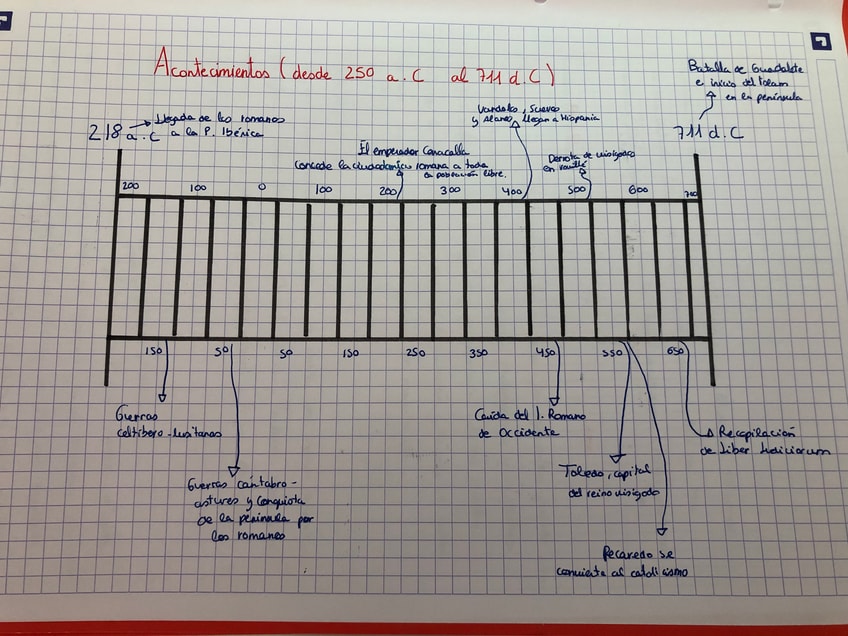 Acontecimientos (desde 250 a.C al 711 d.C)
Batalla de Guadalete
e inicio del Islam
en la península
711 d.C
218 a.C
llegada de los romanos
a la P. Ibérica
Vándalos, Suevos
y Alanos, llegan a Hispania
El emperador Caracalla
concede la ciudadanía romana a toda
la población libre.
Derrota de visigodos
en
200 100 0 100 200 300 400 500 600 700
150 50 50 150 250 350 450 550 650
Guerras
celtíbero-lusitanas
Guerras cántabro-
astures y conquista
de la península por
los romanos
Caída del I. Romano
de Occidente
Toledo, capital
del reino visigodo
Recaredo se
convierte al catolicismo
Recopilación
de Liber Iudiciorum